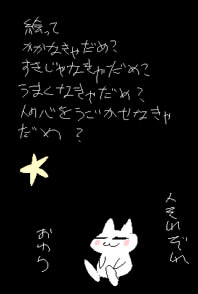 絵って
かかなきゃだめ?
すきじゃなきゃだめ?
うまくなきゃだめ?
人の心をうごかせなきゃ
だめ?
人それぞれ
おわり